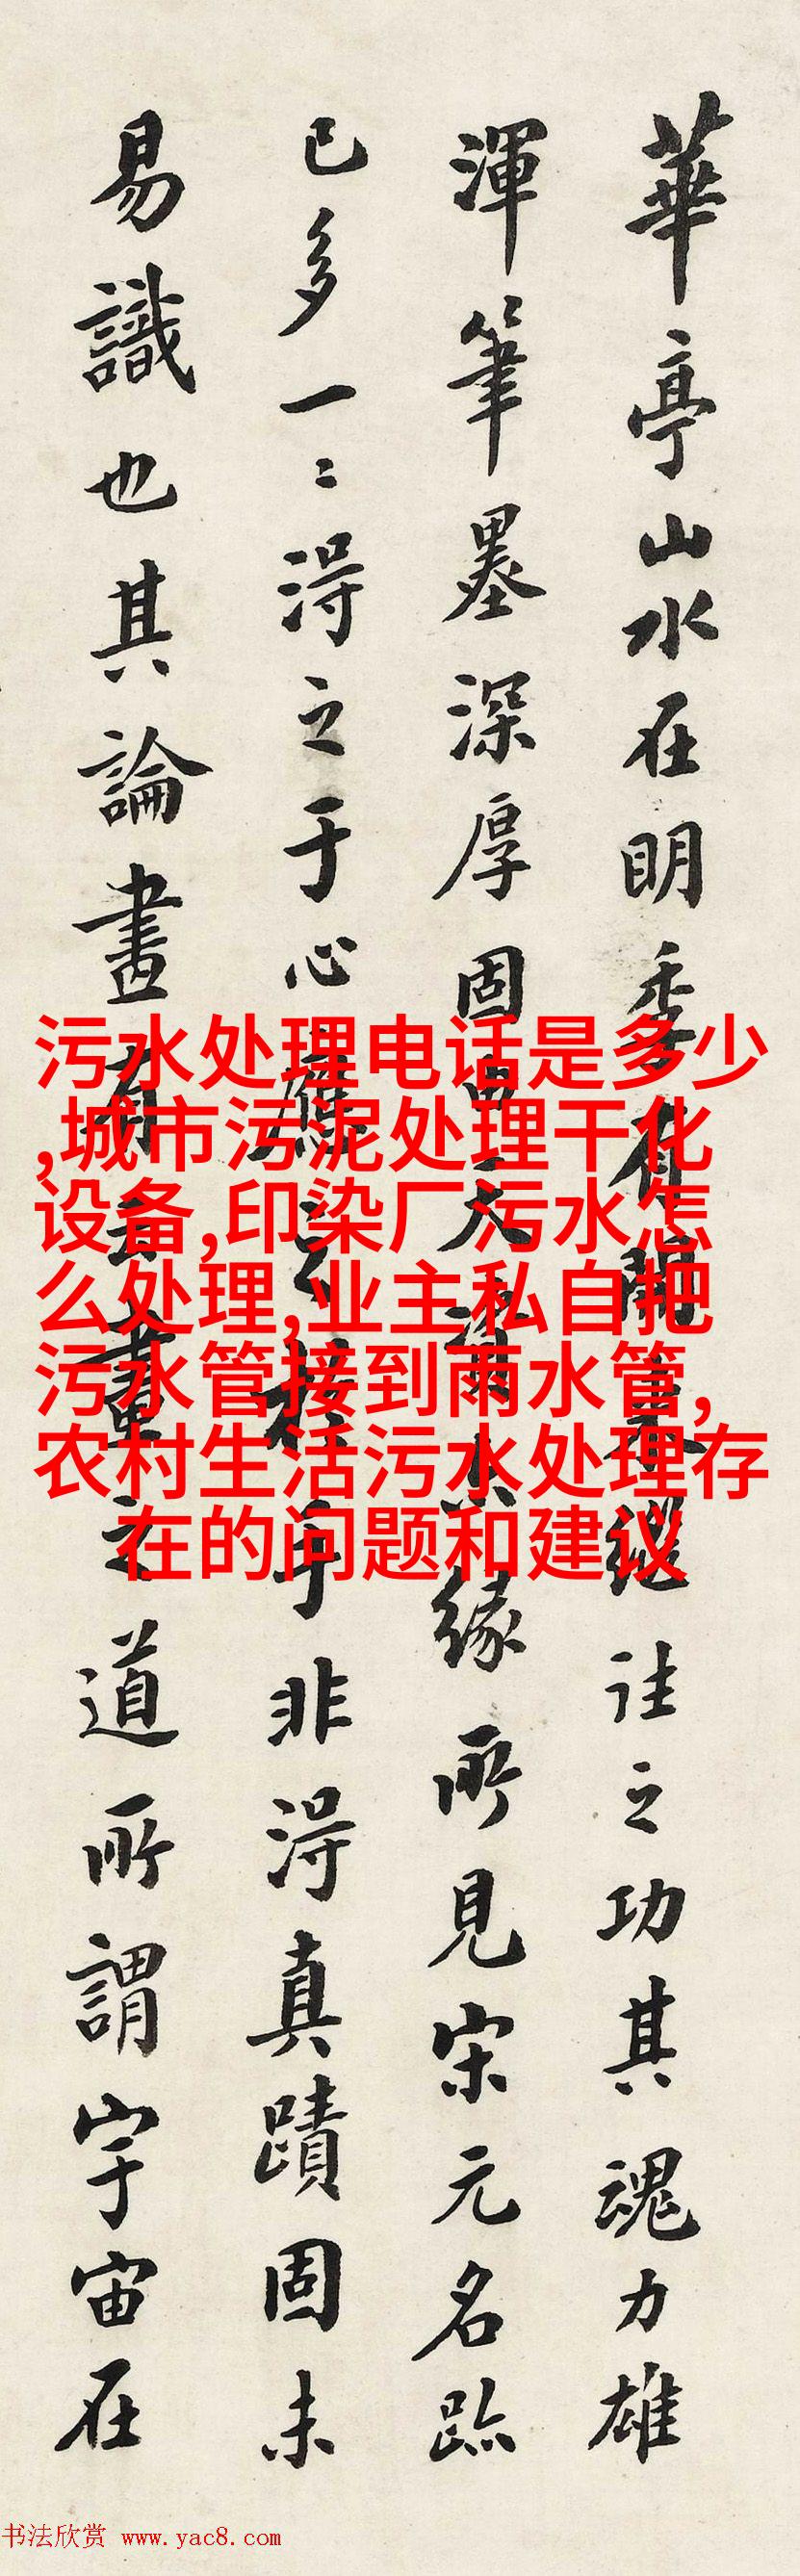 華亭山水在明季有開來繼往之功其魂力雄
渾筆墨深厚固由天資亦緣所見宋元名跡
已多一二得之于心應之於手非得真蹟固未
易識也其論畫有云畫之道所謂宇宙在
污水处理电话是多少
,城市污泥处理干化
设备,印染厂污水怎
么处理,业主私自把
污水管接到雨水管,
农村生活污水处理存
在的问题和建议
书法欣赏 www.yac8.com